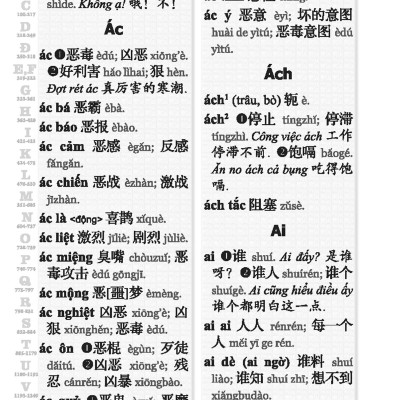 shide. Không ạ! 哦！不！
Ác
ác ❶恶毒 èdú; 凶恶 xiōng'è.
❷好利害 hǎo lìhai; 狠 hèn.
Đợt rét ác 真厉害的寒潮.
ác bá 恶霸 èbà.
ác báo 恶报 èbào.
ác cảm 恶感 ègǎn; 反感
fǎngǎn.
ác chiến 恶战 èzhàn; 激战
jīzhàn.
ác là <động> 喜鹊 xǐquè.
ác liệt 激烈 jīliè; 剧烈 jùliè.
ác miệng 臭嘴 chòuzuǐ; 恶
毒攻击 èdú gōngjī.
ác mộng 恶[噩]梦 èmèng.
ác nghiệt 凶恶 xiōng'è; 凶
狠 xiōnghěn; 恶毒 èdú.
ác ôn ❶恶棍 ègùn; 歹徒
dǎitú. ❷凶恶 xiōng'è; 残
忍 cánrěn; 凶暴 xiōngbào.
ác ý 恶意 èyì; 坏的意图
huài de yìtú; 恶毒意图 èdú
yìtú.
Ách
ách¹ (trâu, bò) 轭 è.
ách² ❶停止 tíngzhǐ; 停滞
tíngzhì. Công việc ách 工作
停滞不前. ❷饱嗝 bǎogé.
Ăn no ách cả bụng 吃得饱
嗝.
ách tắc 阻塞 zǔsè.
Ai
ai ❶谁 shuí. Ai đấy? 是谁
呀? ❷谁人 shuírén; 谁个
shuígè. Ai cũng hiểu điều ấy
谁个都明白这一点.
ai ai 人人 rénrén; 每一个
人 měi yī ge rén.
ai dè (ai ngờ) 谁料 shuí
liào; 谁知 shuí zhī; 想不到
xiǎngbudào.
C
D
Đ
E,F
G
H
I
K
L
M
N
O
P
Q
R
S
T
U
V